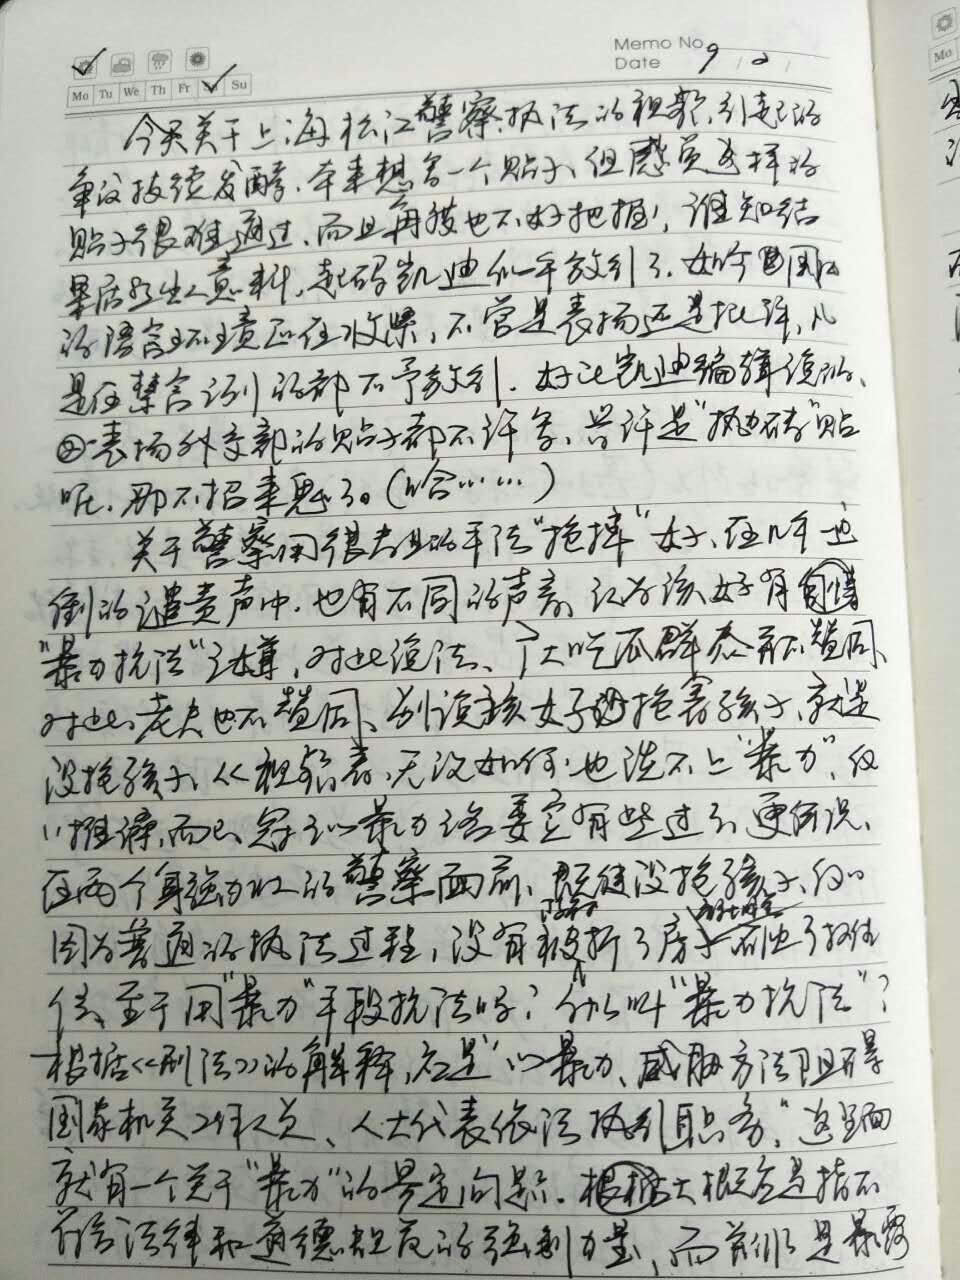 Memo No.
Date 9 / 2 /
Mo Tu We Th Fr Sa Su
今天关于上海松江警察执法的视频引起的
争议持续发酵。本来想写一个贴子,但感觉这样的
贴子很难通过,而且角度也不好把握,谁知结
果居然出人意料,起码凯迪似乎放行了。如今国内
的语言环境正在收紧,不管是表扬还是批评,凡
是在禁言识别的都不予放行。好比凯迪编辑说的、
表扬外交部的贴子都不许写、兴许是"抛砖"贴
呢,那不招来鬼了。(哈……)
关于警察用很专业的手法"抱摔"女子,在几乎一边
倒的谴责声中,也有不同的声音,认为该女子有
"暴力抗法"之嫌,对此说法、广大吃瓜群众有不赞同、
对此,老夫也不赞同、别说该女子抱着孩子,就是
没抱孩子,从视频看,无论如何也谈不上"暴力",仅仅
推搡而已,冠之以暴力该委实有些过了,更何况、
在两个身强力壮的警察面前、即使没抱孩子,仅仅
因为普通的执法过程,没有被拆了房子
至于用"暴力"手段抗法吗?什么叫"暴力抗法"?
根据《刑法》的解释,应是"以暴力、威胁方法阻碍
国家机关工作人员、人大代表依法执行职务,"这里面
就有一个关于"暴力"的界定问题。根据大概应是指不
符合法律和道德规范的强制力量,而前者是暴露